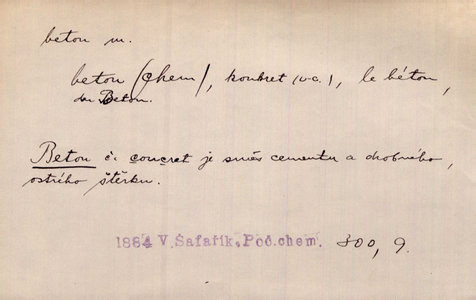 beton m.
beton (chem), konkret (v.c.), le béton,
der Beton.
Beton či concret je směs cementu a drobného,
ostrého štěrku.
1884 V. Šafařík, Poč. chem. 300, 9.